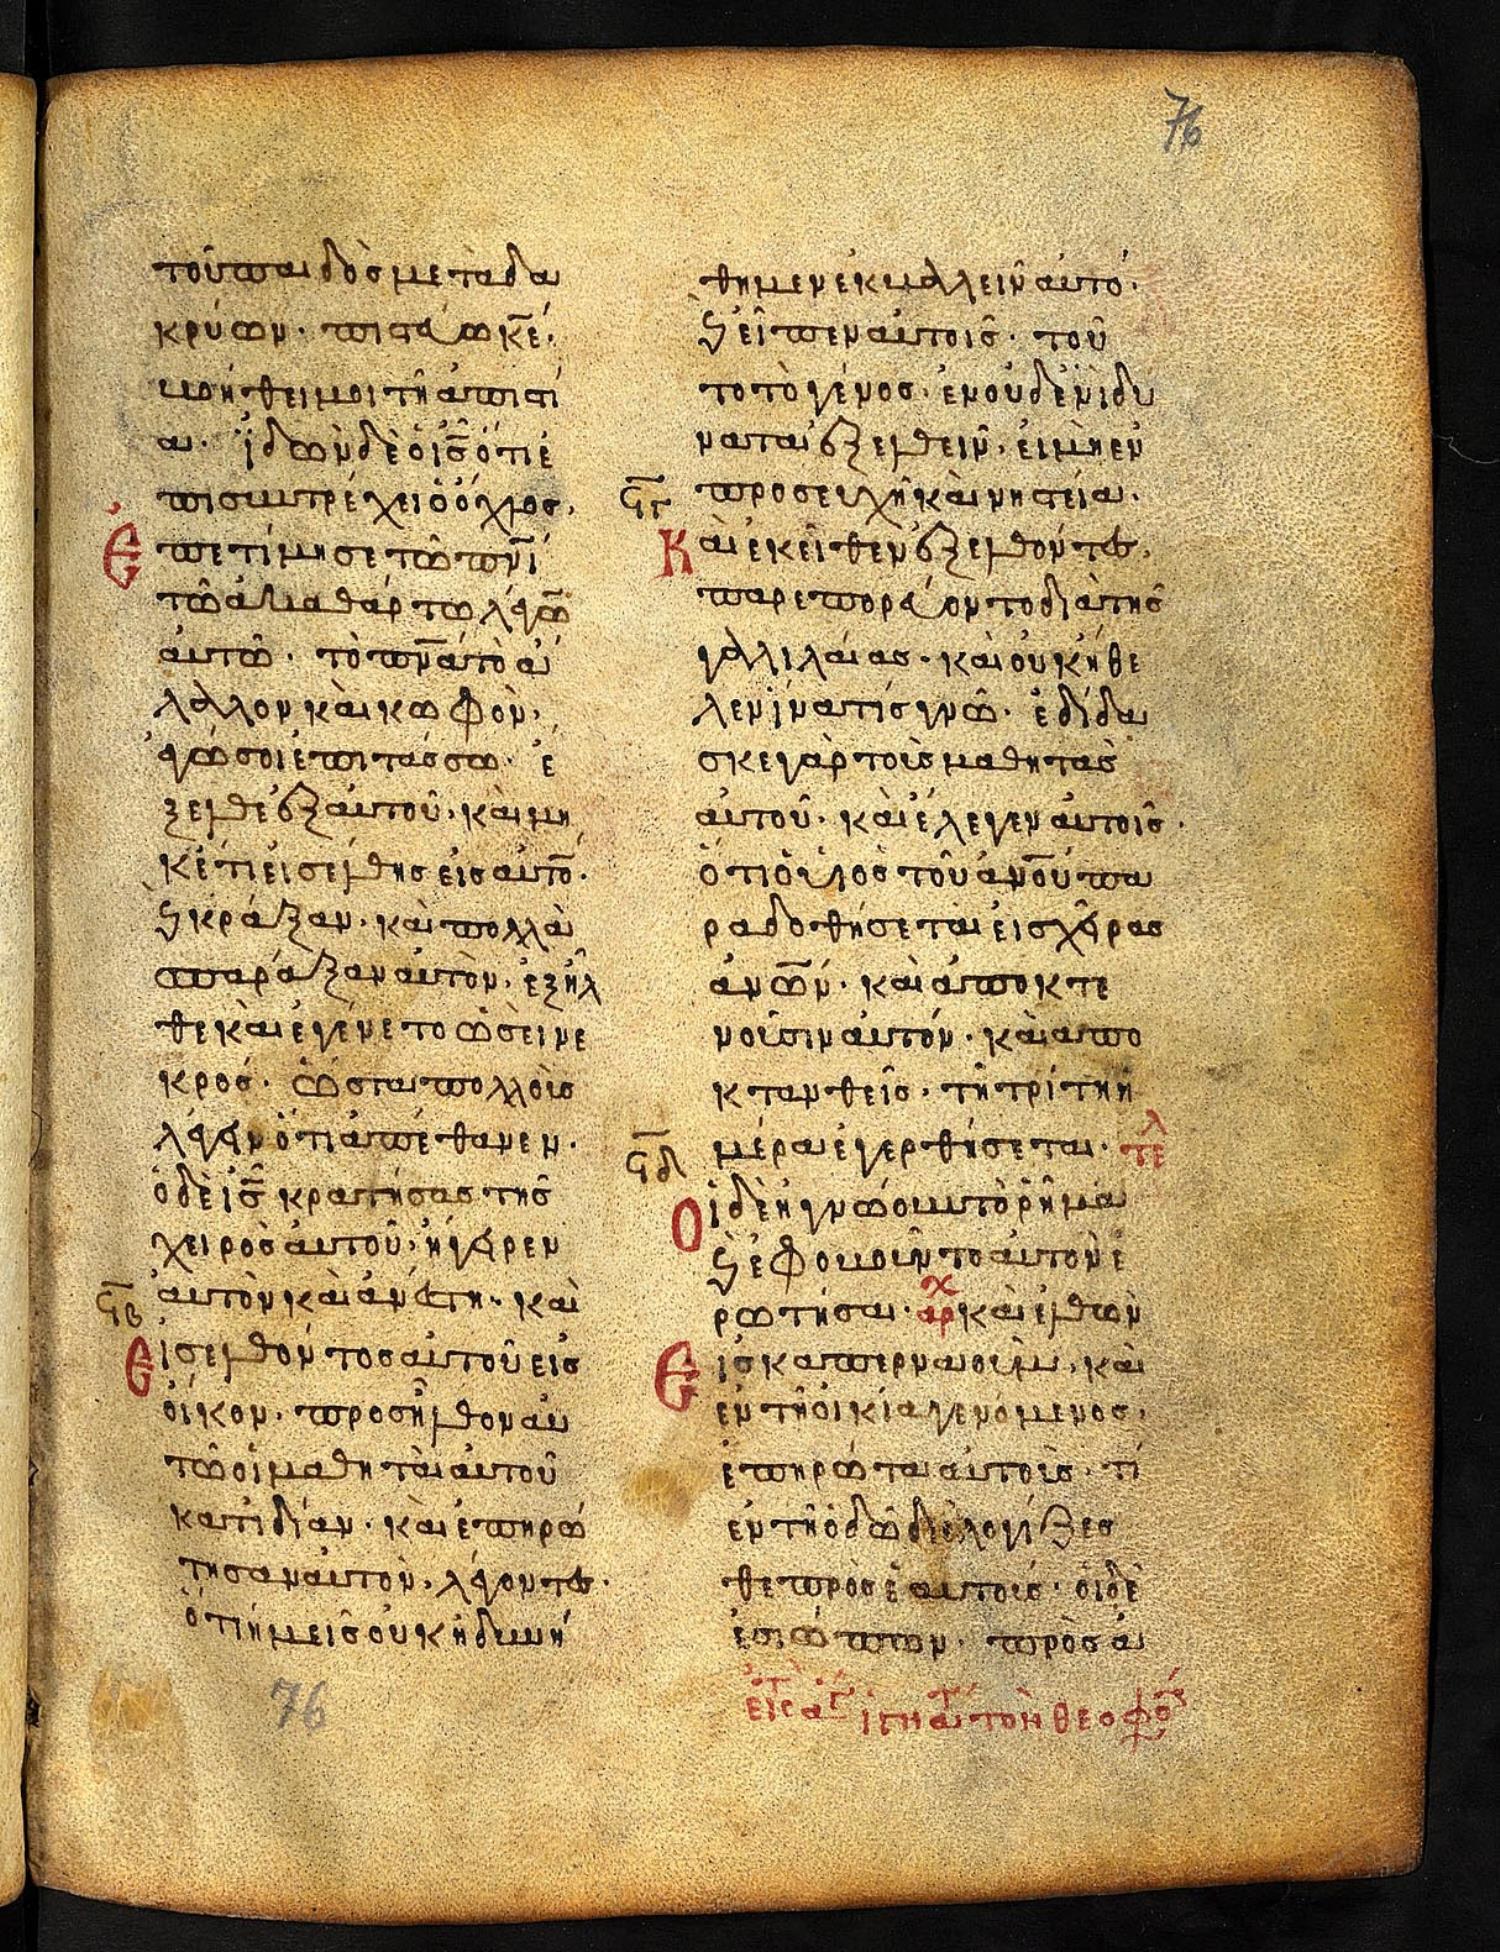 76
τοῦ παιδὸς μετὰ δα
κρύων· πιστεύω κε̅·
βοήθει μοι τῆ ἀπιστί
α· ἰδὼν δὲ ὁ ις̅ ὅτι ἐ
πισυντρέχει ὁ ὄχλος·
Ἐπετίμησε τῶ πνι̅
τῶ ἀκαθάρτω λέγων
αὐτῶ· τὸ πνα̅ τὸ ἄ
λαλον καὶ κωφὸν·
ἐγώ σοι ἐπιτάσσω· ἔ
ξελθε ἐξ αὐτοῦ· καὶ μη
κέτι εἰσέλθης εἰς αὐτό̅·
ϗ κράξαν· καὶ πολλὰ
σπαράξαν αὐτὸν· ἐξῆλ
θε καὶ ἐγένετο ὡσεὶ νε
κρός· ὥσται πολλοὺς
λέγειν ὅτι ἀπέθανεν·
ὁ δὲ ις̅ κρατήσας τῆς
χειρὸς αὐτοῦ· ἤγειρεν
αὐτὸν καὶ ἀνέστη· καὶ
ϛβ
Εἰσελθόντος αὐτοῦ εἰς
οἶκον· προσῆλθον αὐ
τῶ οἱ μαθηταὶ αὐτοῦ
κατιδίαν· καὶ ἐπηρώ
τησαν αὐτὸν· λέγοντες·
ὅτι ἡμεῖς οὐκ ἠδυνή
76
θημεν ἐκβαλλεῖν αὐτό·
ϗ εἶπεν αὐτοῖς· τοῦ
το τὸ γένος· ἐν οὐδενὶ δύ
ναται ἐξελθεῖν· εἰ μὴ ἐν
ϛγ
προσευχῆ καὶ νηστεία·
Καὶ ἐκεῖθεν ἐξελθόντες·
παρεπορεύοντο διὰ τῆς
γαλιλαίας· καὶ οὐκ ἤθε
λεν ἵνα τίς γνῶ· ἐδίδα
σκε γὰρ τοὺς μαθητὰς
αὐτοῦ· καὶ ἔλεγεν αὐτοῖς·
ὅτι ὁ υἱὸς τοῦ ἀνου̅ πα
ραδοθήσεται εἰς χεῖρας
ἀνων̅· καὶ ἀποκτε
νοῦσιν αὐτόν· καὶ απο
κτανθεὶς· τῆ τρίτη ἡ
μέρα ἐγερθήσεται· τελ
ϛδ
Οἱ δὲ ἠγνόουν τὸ ῥῆμα
ϗ ἐφοβοῦντο αὐτὸν ἐ
ρωτῆσαι· αρχ καὶ ἐλθὼν
Εἰς καπερναούμ· καὶ
ἐν τῆ οἰκία γενόμενος·
ἐπηρώτα αὐτοὺς· τί
ἐν τῆ ὁδῶ διελογίζεσ
θε πρὸς ἑαυτοὺς· οἱ δὲ
ἐσιώπων· πρὸς ἀ
εἰς τ ἁγ ἰγνατ τὸν θεοφό